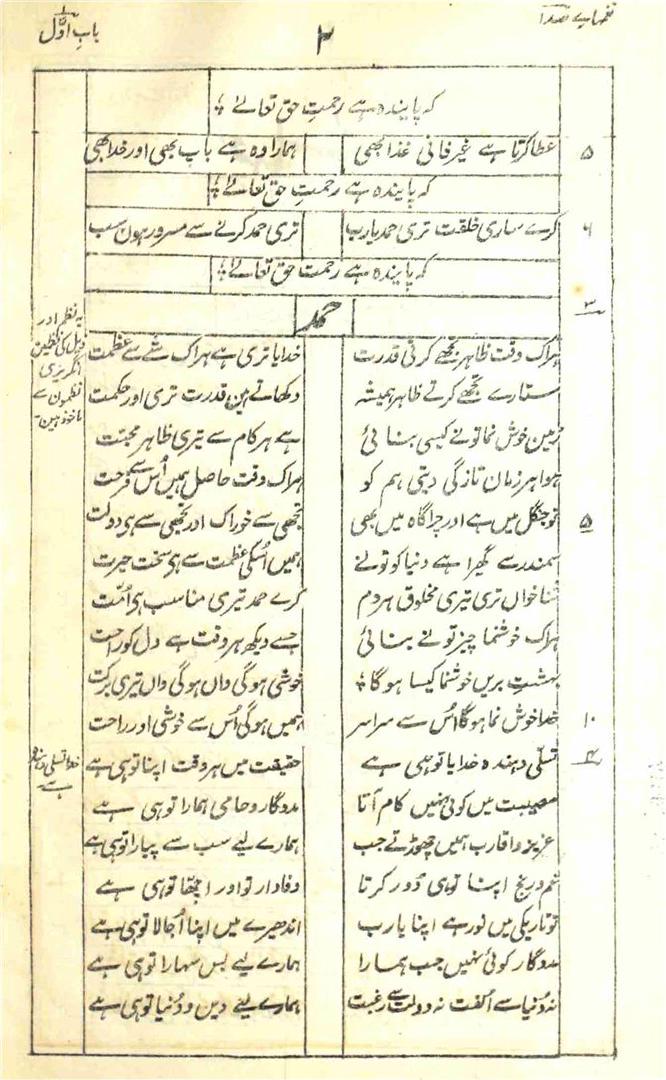 باب اوّل
۲
نغمہائے صدا
کہ پایندہ ہے رحمتِ حق تعالےٰ ؛
۵ عطا کرتا ہے غیر فانی غذا بھی ہمارا وہ ہے باپ بھی اور خدا بھی
کہ پایندہ ہے رحمتِ حق تعالےٰ ؛
۶ کرے ساری خلقت تری حمد یارب تری حمد کرنے سے مسرور ہون سب
کہ پایندہ ہے رحمت حق تعالےٰ ؛
۳
حمد
ہر اک وقت ظاہر تجھے کرتی قدرت خدایا تری ہے ہر اک شے سے عظمت
ستارے تجھے کرتے ظاہر ہمیشہ دکھاتے ہین قدرت تری اور حکمت
زمین خوش نما تونے کیسی بنائی ہے ہر کام سے تیری ظاہر محبّت
ہوا ہر زمان تازگی دیتی ہم کو ہر اک وقت حاصل ہمیں اُس سے فرحت
۵ تو جنگل میں ہے اور چراگاہ میں بھی تجھی سے خوراک اور تجھی سے ہی دولت
سمندر سے گھیرا ہے دنیا کو تونے ہمیں اُسکی عظمت سے ہی سخت حیرت
ثنا خواں تری تیری مخلوق ہر دم کرے حمد تیری مناسب ہی اُمّت
ہر اک خوشنما چیز تونے بنائی جسے دیکھ ہر وقت ہے دل کو راحت
بہشتِ بریں خوشنما کیسا ہوگا ؛ خوشی ہوگی واں ہوگی واں تیری برکت
۱۰ خدا خوش نما ہوگا اُس سے سراسر ہمیں ہوگی اُس سے خوشی اور راحت
یہ نظم اور ذیل کی نظمین انگریزی نظمون سے ماخوذ ہین۔
۴ تسلّی دہندہ خدایا تو ہی ہے حقیقت میں ہر وقت اپنا تو ہی ہے
مصیبت میں کوئی نہیں کام آتا مددگار و حامی ہمارا تو ہی ہے
عزیز و اقارب ہمیں چھوڑتے جب ہمارے لیے سب سے پیارا تو ہی ہے
غم و رنج اپنا تو ہی دُور کرتا وفادار تو اور اچھّا تو ہی ہے
تو تاریکی میں نور ہے اپنا یارب اندھیرے میں اپنا اُجالا تو ہی ہے
مددگار کوئی نہیں جب ہمارا ہمارے لیے بس سہارا تو ہی ہے
نہ دُنیا سے اُلفت نہ دولت سے رغبت ہمارے لیے دین و دُنیا تو ہی ہے
خدا تسلی دہندہ ہے